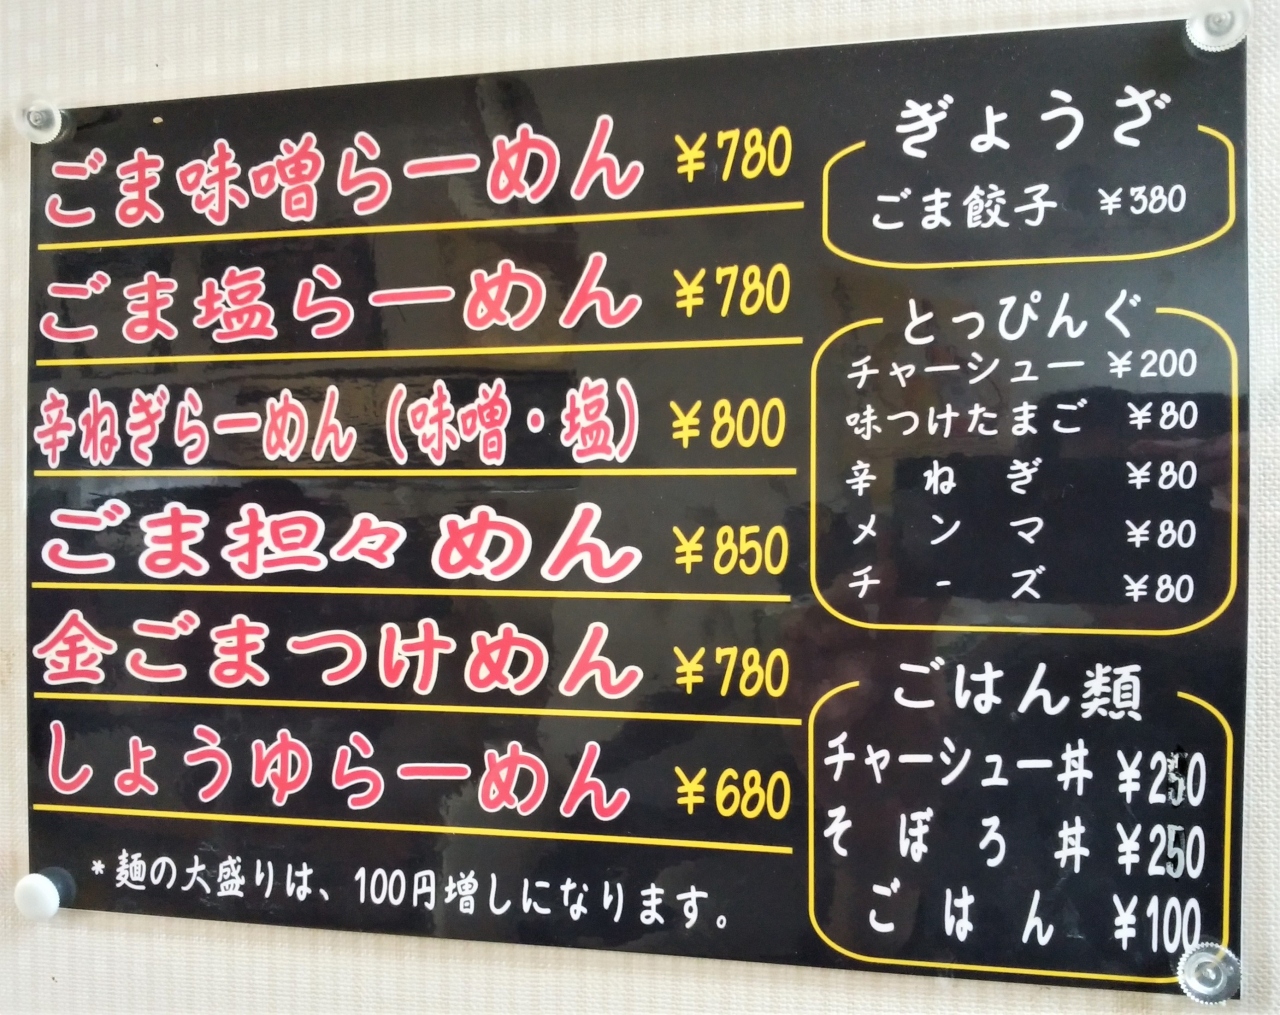 ごま味噌らーめん ¥780
ごま塩らーめん ¥780
辛ねぎらーめん（味噌・塩） ¥800
ごま担々めん ¥850
金ごまつけめん ¥780
しょうゆらーめん ¥680
*麺の大盛りは、100円増しになります。
ぎょうざ
ごま餃子 ¥380
とっぴんぐ
チャーシュー ¥200
味つけたまご ¥80
辛ねぎ ¥80
メンマ ¥80
チーズ ¥80
ごはん類
チャーシュー丼 ¥250
そぼろ丼 ¥250
ごはん ¥100